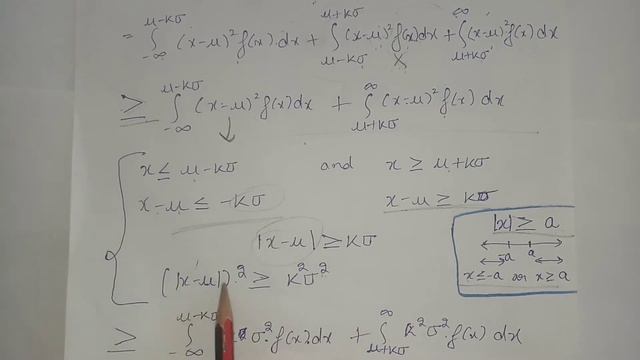 = ∫_{-∞}^{μ-kσ} (x-μ)² f(x).dx + ∫_{μ-kσ}^{μ+kσ} (x-μ)² f(x)dx + ∫_{μ+kσ}^{∞} (x-μ)² f(x) dx
≥ ∫_{-∞}^{μ-kσ} (x-μ)² f(x)dx + ∫_{μ+kσ}^{∞} (x-μ)² f(x) dx
x ≤ μ-kσ and x ≥ μ+kσ
x-μ ≤ -kσ x-μ ≥ kσ
|x-μ| ≥ kσ
(|x-μ|)² ≥ k²σ²
|x| ≥ a
-a a
x≤-a or x≥a
≥ ∫_{-∞}^{μ-kσ} σ² f(x)dx + ∫_{μ+kσ}^{∞} k²σ² f(x) dx